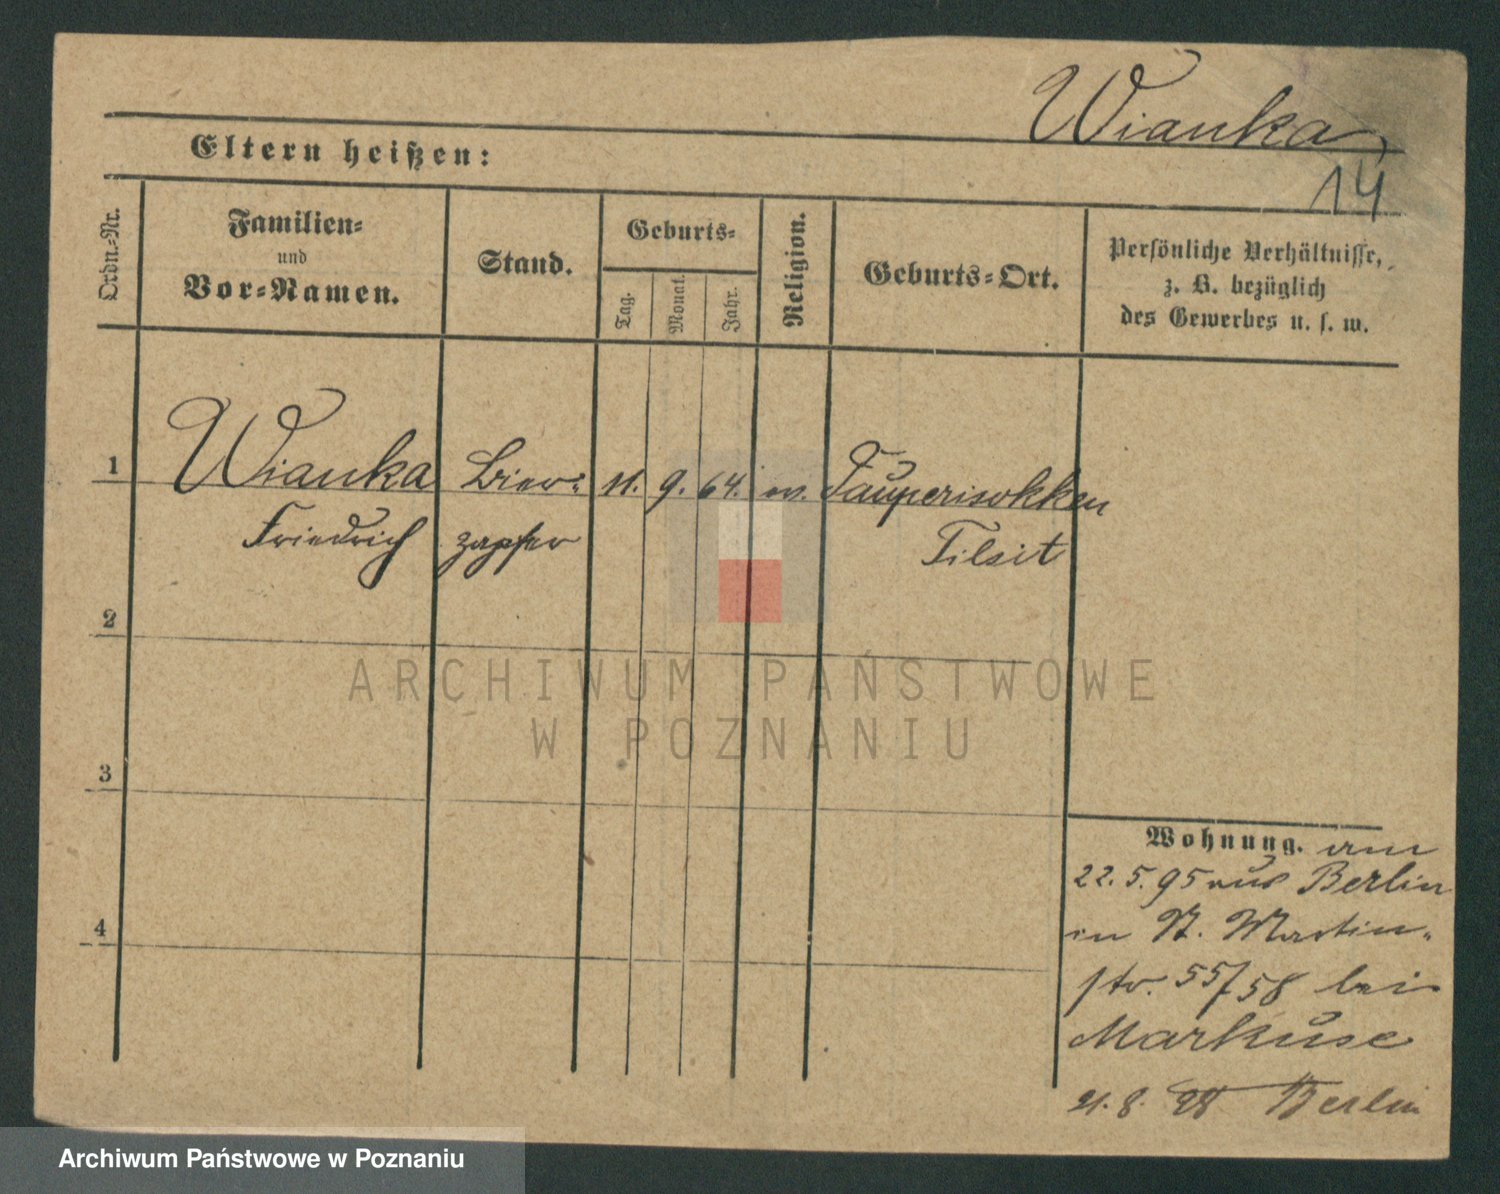 Wianka
14
Eltern heißen:
Ordn.-Nr.
Familien-
und
Vor-Namen.
Stand.
Geburts-
Tag.
Monat.
Jahr.
Religion.
Geburts-Ort.
Persönliche Verhältnisse,
z. B. bezüglich
des Gewerbes u. s. w.
1
Wianka Bier- 11. 9. 64. ev.
Friedrich zapfer Tilsit
2
ARCHIWUM PAŃSTWOWE
W POZNANIU
3
Wohnung. am
22. 5. 95 aus Berlin
in St. Martin-
str. 55/58 bei
Markuse
8. 98 Berlin
4
Archiwum Państwowe w Poznaniu